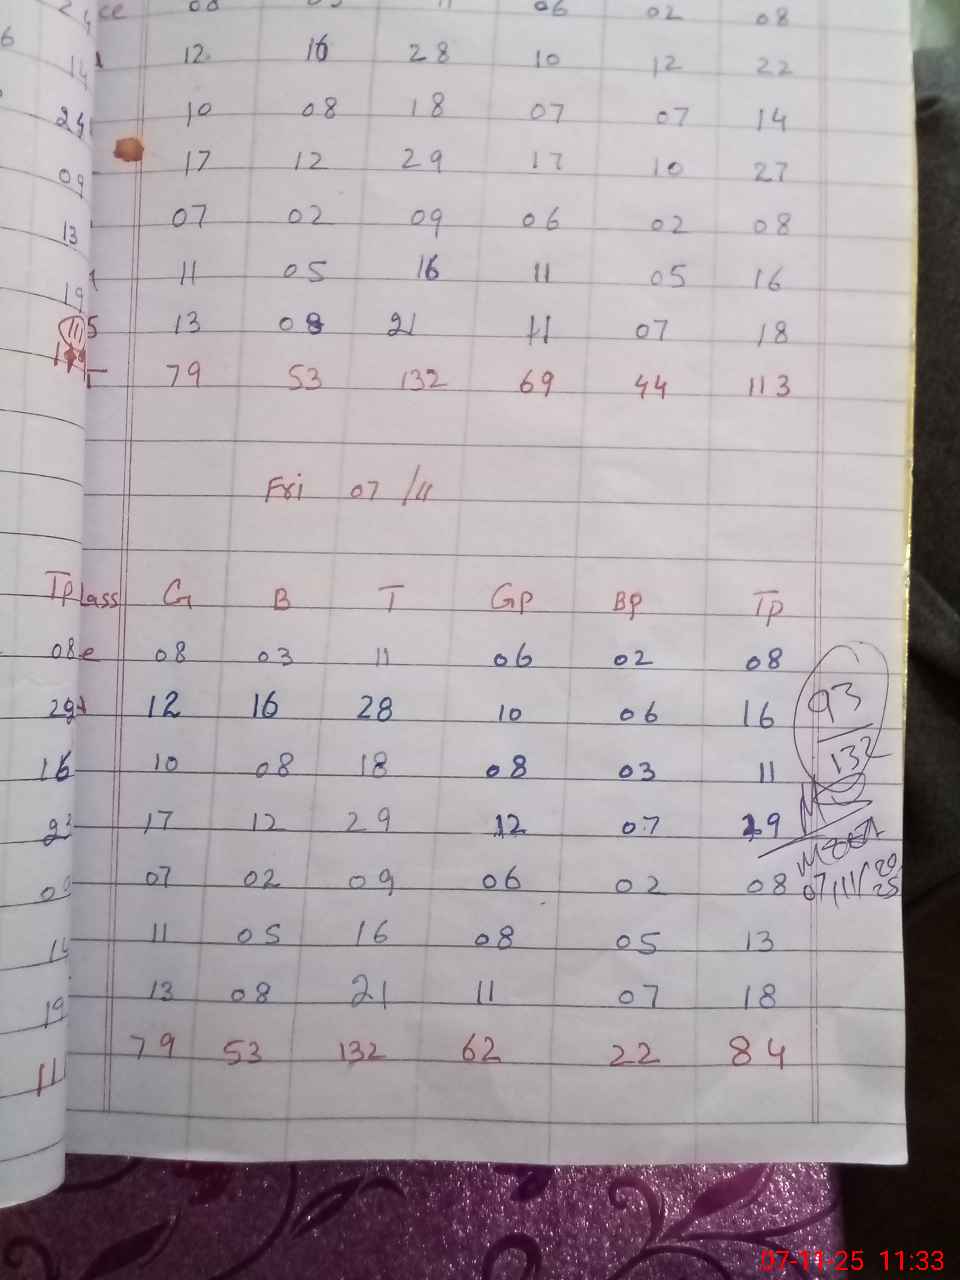 ce 08 03 11 06 02 08
12 16 28 10 12 22
10 08 18 07 07 14
17 12 29 17 10 27
07 02 09 06 02 08
11 05 16 11 05 16
13 08 21 11 07 18
T 79 53 132 69 44 113
Fri 07/11
Tp lass G B T Gp Bp Tp
08 e 08 03 11 06 02 08
29 12 16 28 10 06 16
16 10 08 18 08 03 11
17 12 29 12 07 19
07 02 09 06 02 08
11 05 16 08 05 13
19 13 08 21 11 07 18
11 79 53 132 62 22 84
24
14
24
09
13
19
11 5
6
93
132
07/11/2025
07-11-25 11:33